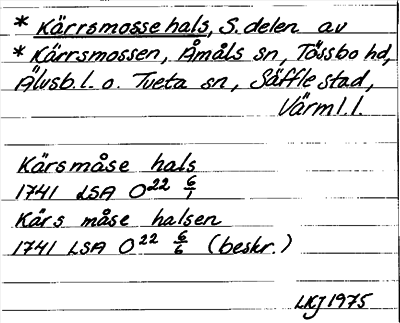 * Kärrsmosse hals, S. delen av
* Kärrsmossen, Åmåls sn, Tössbo hd,
Älvsb. l. o. Tveta sn, Säffle stad,
Värml. l.
Kärsmåse hals
1741 LSA O22 6/1
Kärs måse halsen
1741 LSA O22 6/6 (beskr.)
LKJ 1975